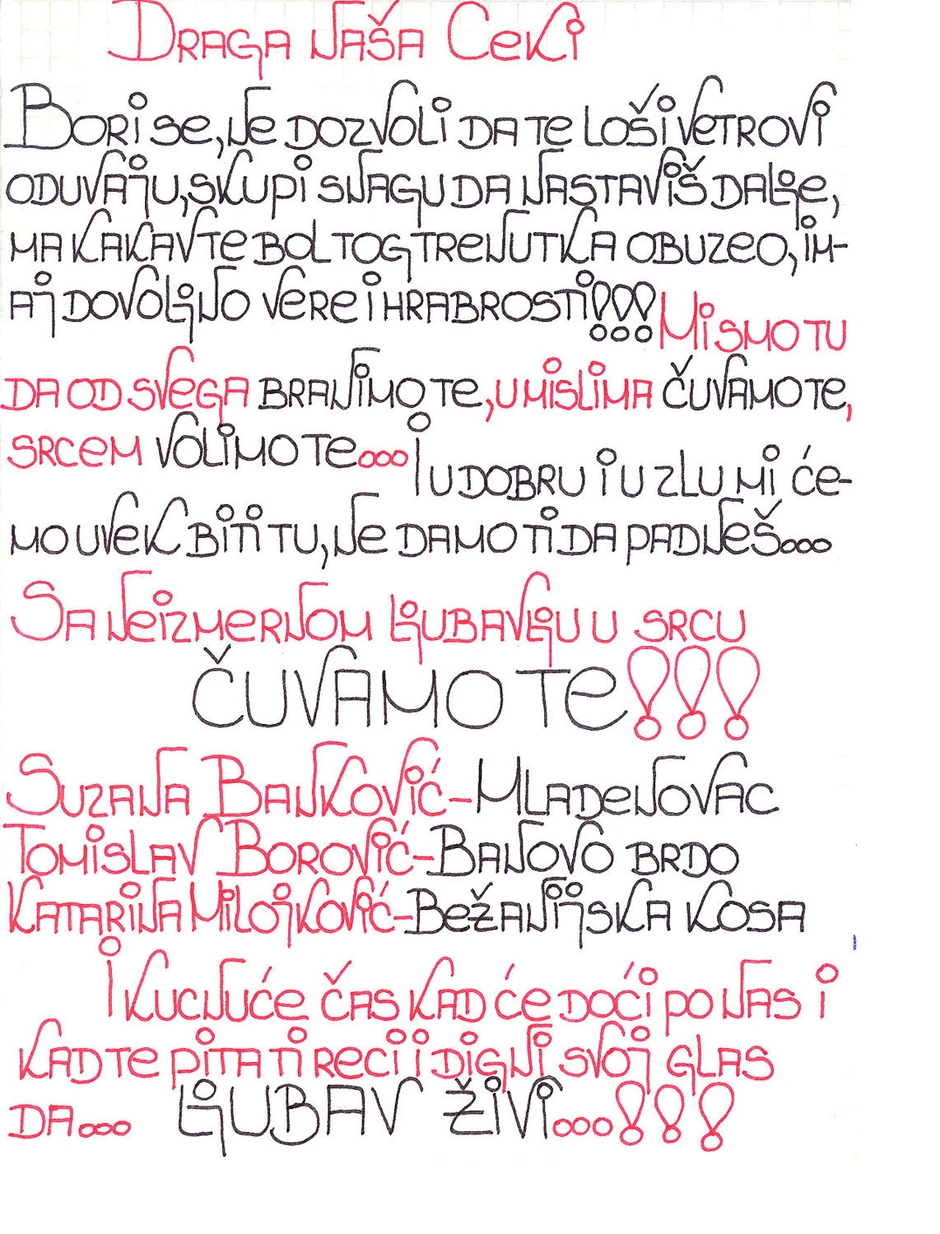 Draga naša Ceki
Bori se, ne dozvoli da te loši vetrovi
oduvaju, skupi snagu da nastaviš dalje,
ma kakav te bol tog trenutka obuzeo, im-
aj dovoljno vere i hrabrosti!!! Mi smo tu
da od svega branimo te, u mislima čuvamo te,
srcem volimo te... I u dobru i u zlu mi će-
mo uvek biti tu, ne damo ti da padneš...
Sa neizmernom ljubavlju u srcu
ČUVAMO TE!!!
Suzana Banković-Mladenovac
Tomislav Borović-Banovo brdo
Katarina Milojković-Bežanijska kosa
I kucnuće čas kad će doći po nas i
kad te pita ti reci i digni svoj glas
da... ljubav živi...!!!